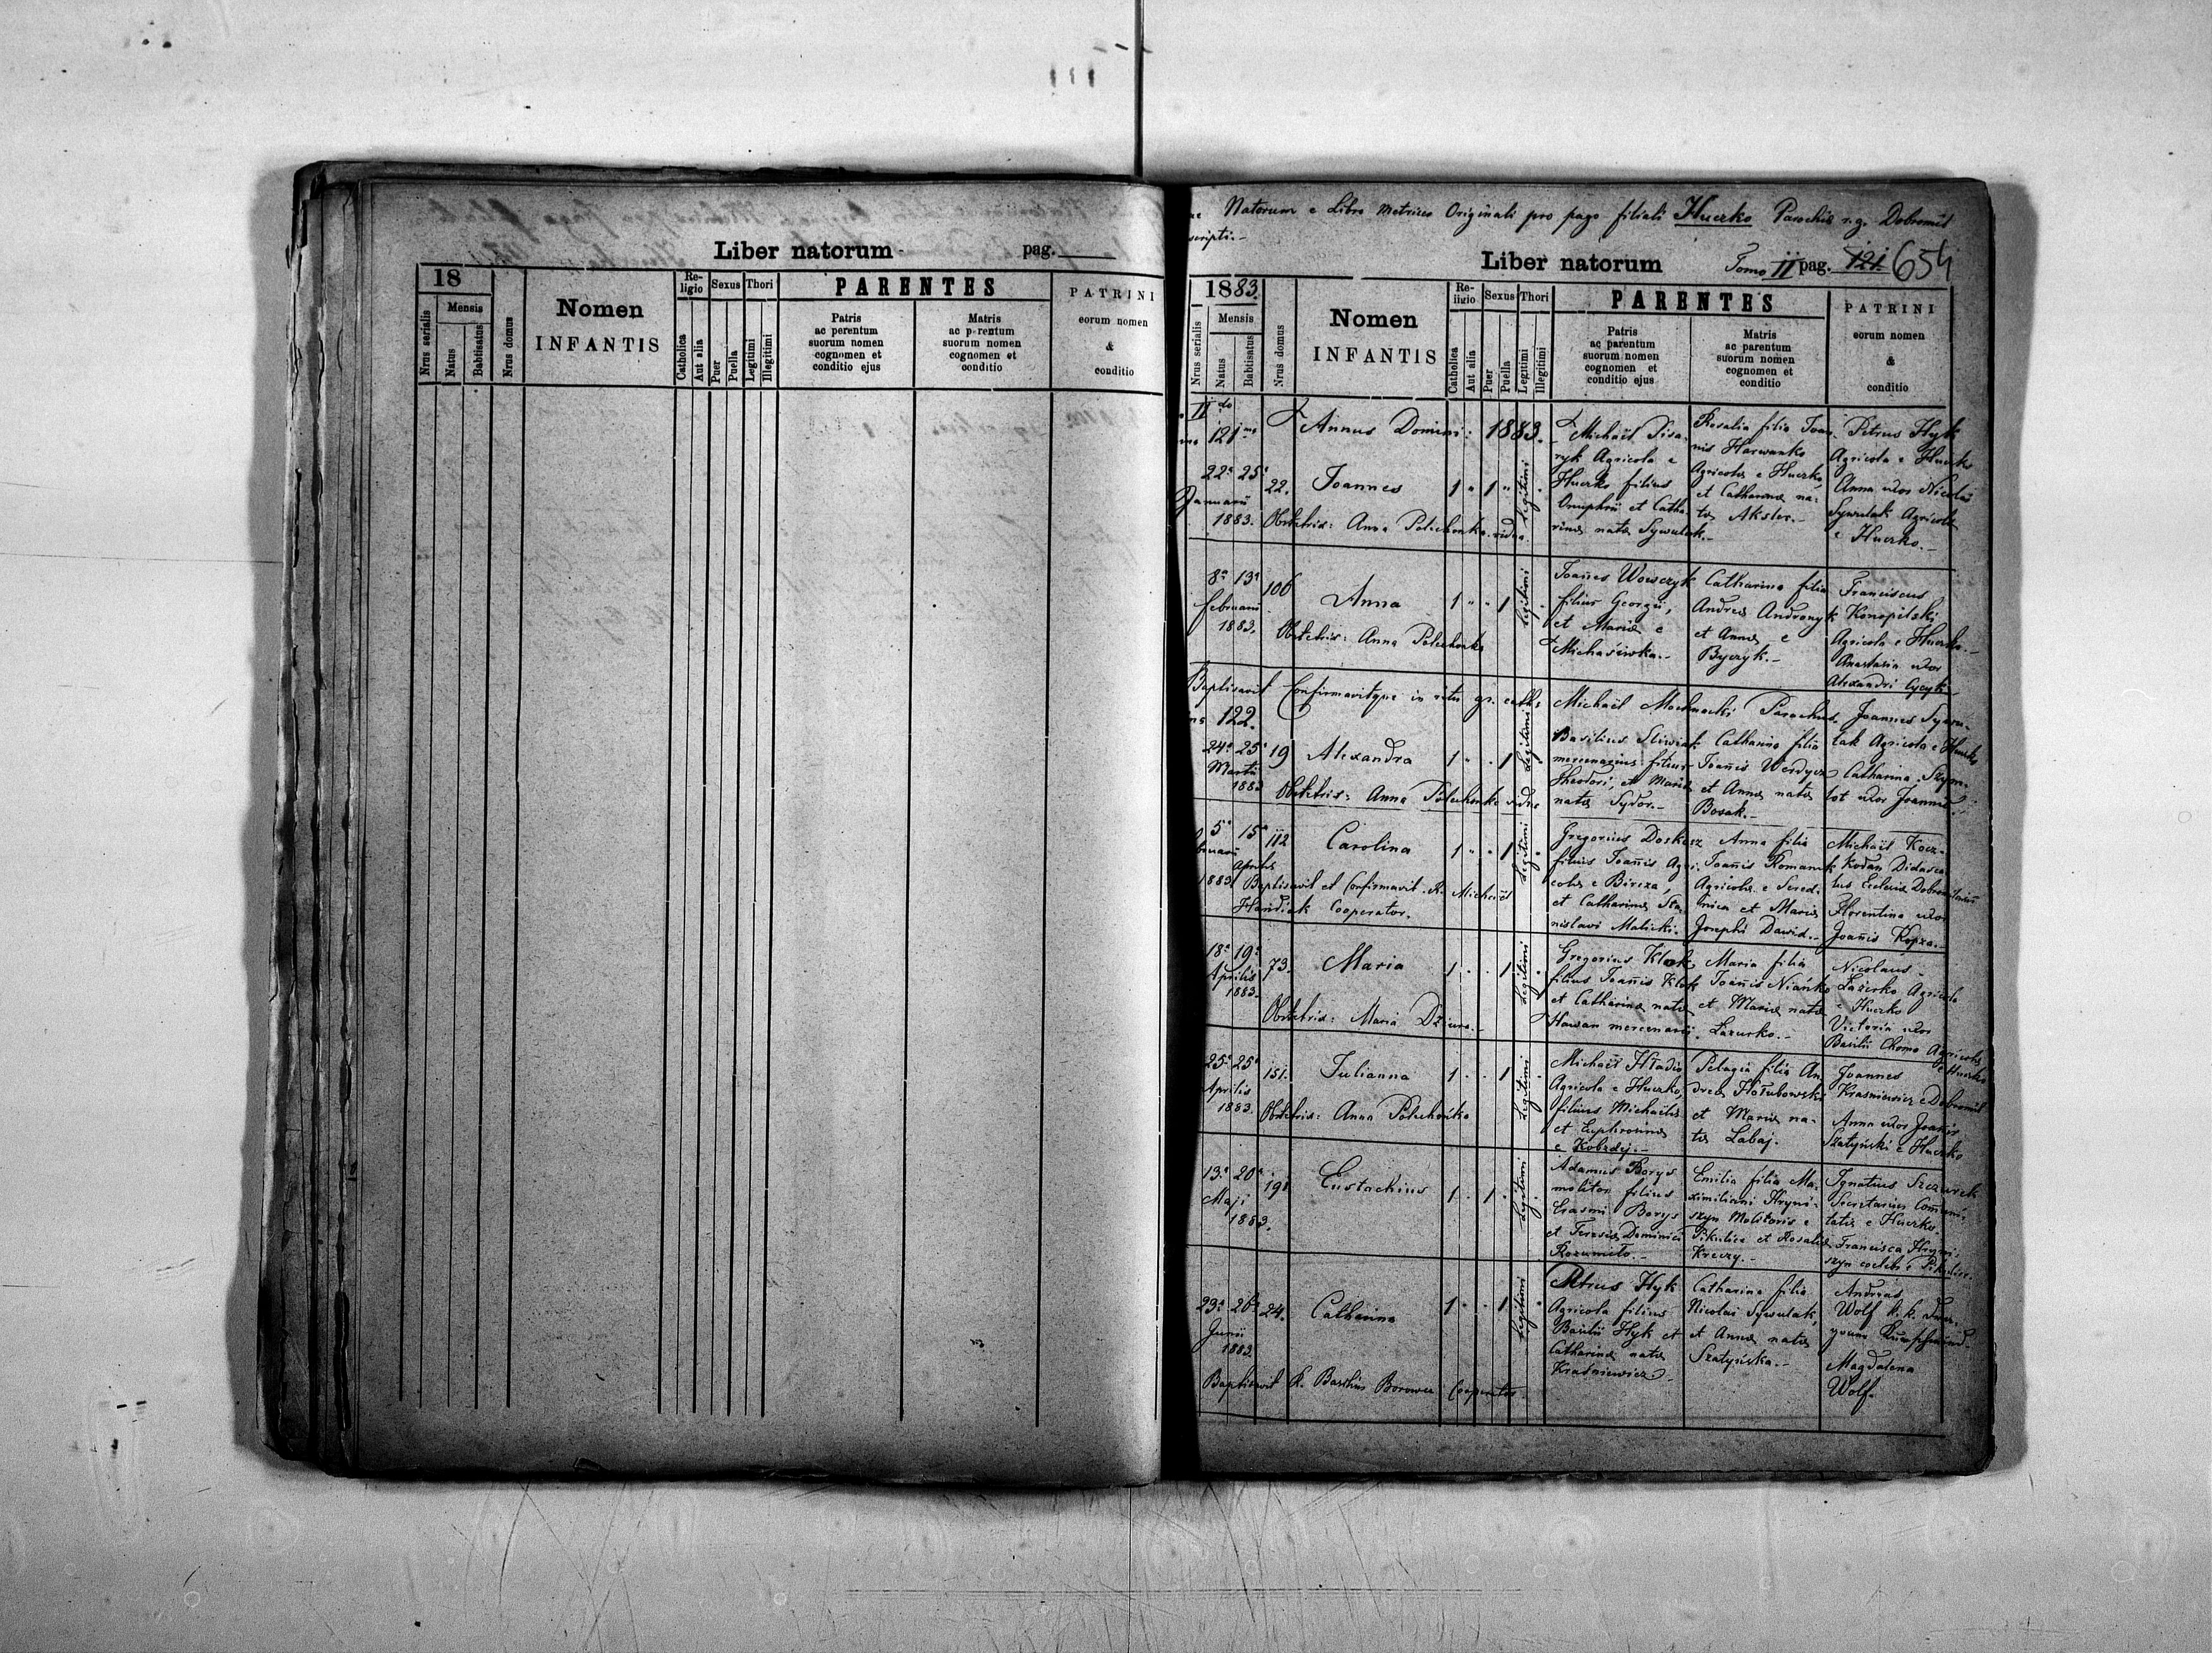 Liber natorum pag.
18
Nrus serialis
Mensis
Natus
Babtisatus
Nrus domus
Nomen
INFANTIS
Re-
ligio
Catholica
Aut alia
Sexus
Puer
Puella
Thori
Legitimi
Illegitimi
PARENTES
Patris
ac perentum
suorum nomen
cognomen et
conditio ejus
Matris
ac p rentum
suorum nomen
cognomen et
conditio
PATRINI
eorum nomen
&
conditio
Natorum e Libro Metrices Originali pro pago filiali Huczko Parochiæ r.g. Dobromil
scripti.-
Liber natorum Tomo II pag. 121 654
1883.
Nrus serialis
Mensis
Natus
Babtisatus
Nrus domus
Nomen
INFANTIS
Re-
ligio
Catholica
Aut alia
Sexus
Puer
Puella
Thori
Legitimi
Illegitimi
PARENTES
Patris
ac parentum
suorum nomen
cognomen et
conditio ejus
Matris
ac parentum
suorum nomen
cognomen et
conditio
PATRINI
eorum nomen
&
conditio
II do
121 mo
Annus Domini: 1883.
22a 25a
Januarii
1883.
22.
Joannes
1 " 1 "
Legitimi
Obstetrix: Anna Polichonko vidua
Michaël Pisa-
ryk Agricola e
Huczko filius
Onuphrii et Catha-
rinæ natæ Sywulak.-
Rosalia filia Joan-
nis Harwanko
Agricolæ e Huczko,
et Catharinæ na-
tæ Aksler.-
Petrus Hyk
Agricola e Huczko
Anna uxor Nicolai
Sywulak Agricolæ
e Huczko.-
8a 13a
Februarii
1883.
106
Anna
1 " " 1
Legitimi
Obstetrix: Anna Polichonko
Joañes Wowczyk
filius Georgii,
et Mariæ e
Michasiwka.-
Catharina filia
Andreæ Androzyk
et Annæ e
Byczyk.-
Franciscus
Konopilski
Agricola e Huczko.-
Anastasia uxor
Alexandri Cycyk
Baptisavit Confirmavitque in ritu gr. cath. Michaël Mochnacki Parochus.
122.
24a 25a
Martii
1883
19
Alexandra
1 " . 1
Legitimi
Obstetrix: Anna Polichonko vidua
Basilius Sliwiak
mercenarius filius
Theodori, et Mariæ
natæ Sydor.-
Catharina filia
Joañis Werdycz
et Annæ natæ
Bosak.-
Joannes Sywu-
lak Agricola e Huczko
Catharina Szym-
lot uxor Joannis
5a 15a
Aprilis
1883
112
Carolina
1 " . 1
Legitimi
Baptisavit et Confirmavit R. Michaël
Handiak Cooperator.
Gregorius Doskocz
filius Joañis Agri-
colæ e Bircza,
et Catharinæ Sta-
nislavi Malicki.-
Anna filia
Joañis Romanik
Agricolæ e Sered-
nica et Mariæ
Josephi Dawid.-
Michaël Kocz-
kodan Didasca-
lus Ecclesiæ Dobromiliensis
Florentina uxor
Joañis Kopza.-
18a 19a
Aprilis
1883.
73.
Maria
1 . . 1
Legitimi
Obstetrix: Maria Dziura.-
Gregorius Klok
filius Joañis Klok
et Catharinæ natæ
Hawan mercenarii.
Maria filia
Joañis Niańko
et Mariæ natæ
Lazurko.-
Nicolaus
Lazerko Agricola
e Huczko
Victoria uxor
Basilii Choma Agricolæ
e Huczko
25a 25a
Aprilis
1883.
151.
Julianna
1 . . 1
Legitimi
Obstetrix: Anna Polichońko
Michaël Hladio
Agricola e Huczko,
filius Michaëlis
et Euphrosinæ
e Kobzdej.-
Pelagia filia An-
dreæ Hołubowski
et Mariæ na-
tæ Labaj.
Joannes
Krasniewicz e Dobromil
Anna uxor Joanis
Szatyński e Huczko
13a 20a
Maji
1883.
191
Eustachius
1 . 1 .
Legitimi
Adamus Borys
molitor filius
Erasmi Borys
et Teresiæ Dominici
Rozumiło.-
Emilia filia Ma-
ximiliani Hryni-
szyn Molitoris e
Pikulice et Rosaliæ
Kreczy.-
Ignatius Szczurek
Secretarius Comuni-
tatis e Huczko.
Francisca Hryni-
szyn coelebs e Pikulice.
23a 26a
Junii
1883.
24.
Catharina
1 . . 1
Legitimi
Baptisavit R. Basilius Borowec Cooperator.
Petrus Hyk
Agricola filius
Basilii Hyk et
Catharinæ natæ
Krasniewicz
Catharina filia
Nicolai Sywulak,
et Annæ natæ
Szatyńska.-
Andreas
Wolf k. k.
Magdalena
Wolf.